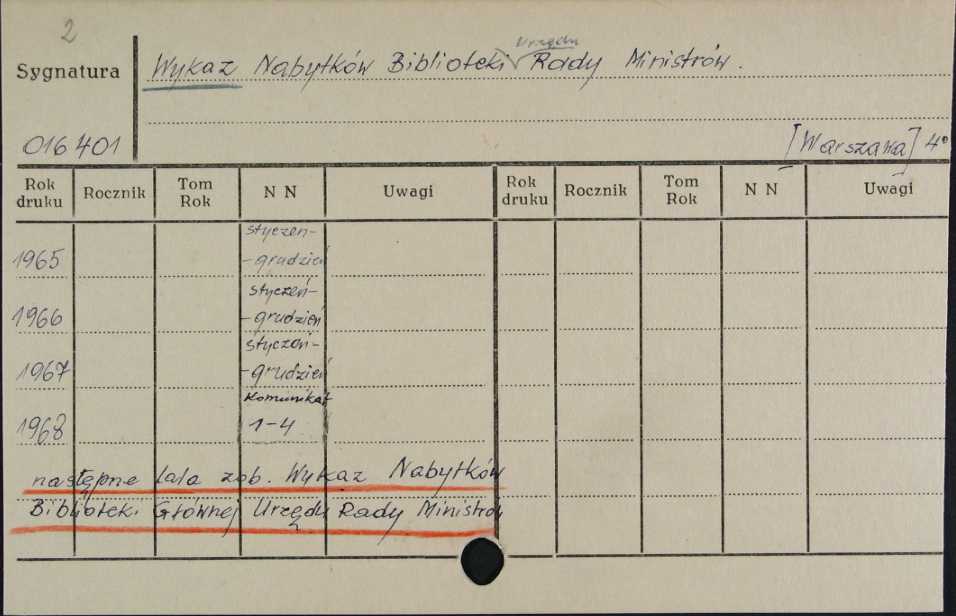 2
Urzędu
Sygnatura Wykaz Nabytków Biblioteki Rady Ministrów.
016401 [Warszawa] 4°
Rok druku Rocznik Tom Rok N N Uwagi Rok druku Rocznik Tom Rok N N Uwagi
styczeń-
1965 -grudzień
styczeń-
1966 -grudzień
styczeń-
1967 -grudzień
Komunikat
1968 1-4
następne lata zob. Wykaz Nabytków
Biblioteki Głównej Urzędu Rady Ministrów